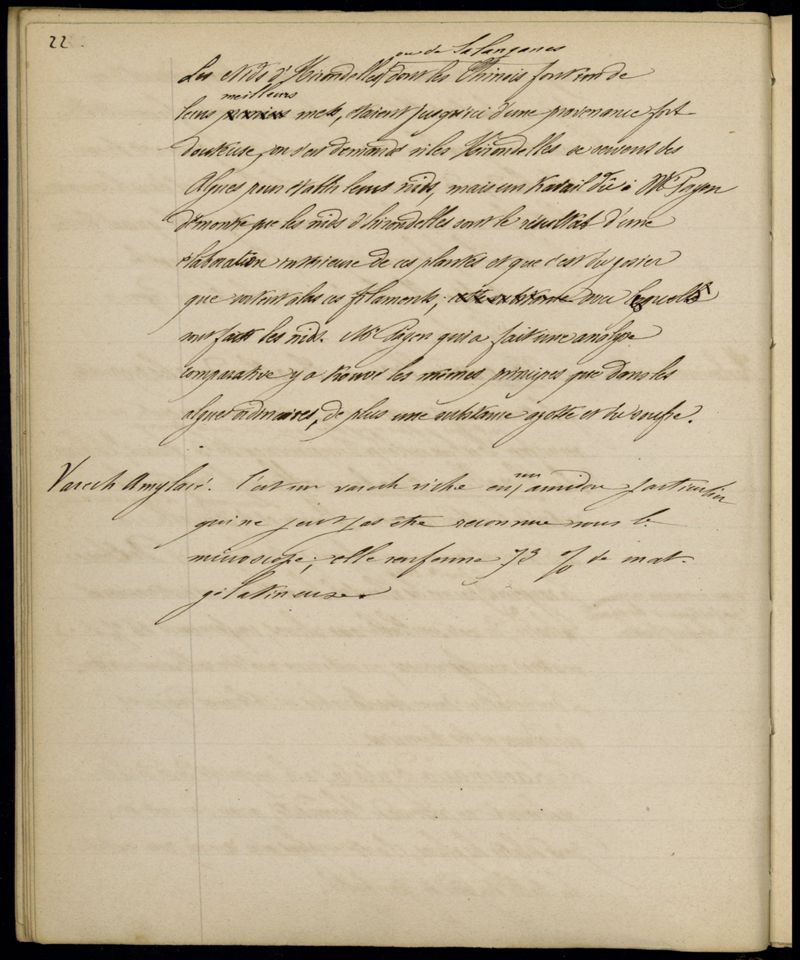 22
ou de Salanganes
Les Nids d'Hirondelles dont les Chinois font un de
meilleurs
leurs mets, étaient jusqu'ici d'une provenance fort
douteuse, on s'est demandé si les Hirondelles se servent des
Algues pour établir leurs nids, mais un travail dû à Mr Payen
démontre que les nids d'hirondelles sont le résultat d'une
élaboration intérieure de ces plantes et que c'est du gosier
que sortent alors ces filaments; avec lesquels
sont faits les nids. Mr Payen qui a fait une analyse
comparative y a trouvé les mêmes principes que dans les
algues ordinaires, de plus une substance azotée et du soufre.
Varech Amylacé. C'est un varech riche en un amidon particulier
qui ne peut pas être reconnu sous le
microscope; elle renferme 73 % de mat.
gélatineuse.